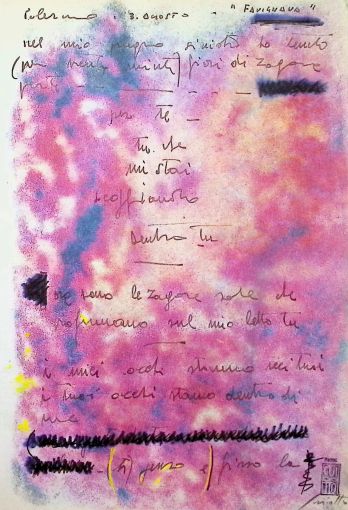 Palermo . 3. Agosto - "FAVIGNANA"
nel mio pugno sinistro ho tenuto
(per venti minuti) fiori di zagare
per te -
tu. che
mi stai
scoppiando
dentro tu
ora sono le zagare sole che
profumano sul mio letto tu
i miei occhi stanno
i tuoi occhi stanno dentro di
me
(ti) penso e fisso la